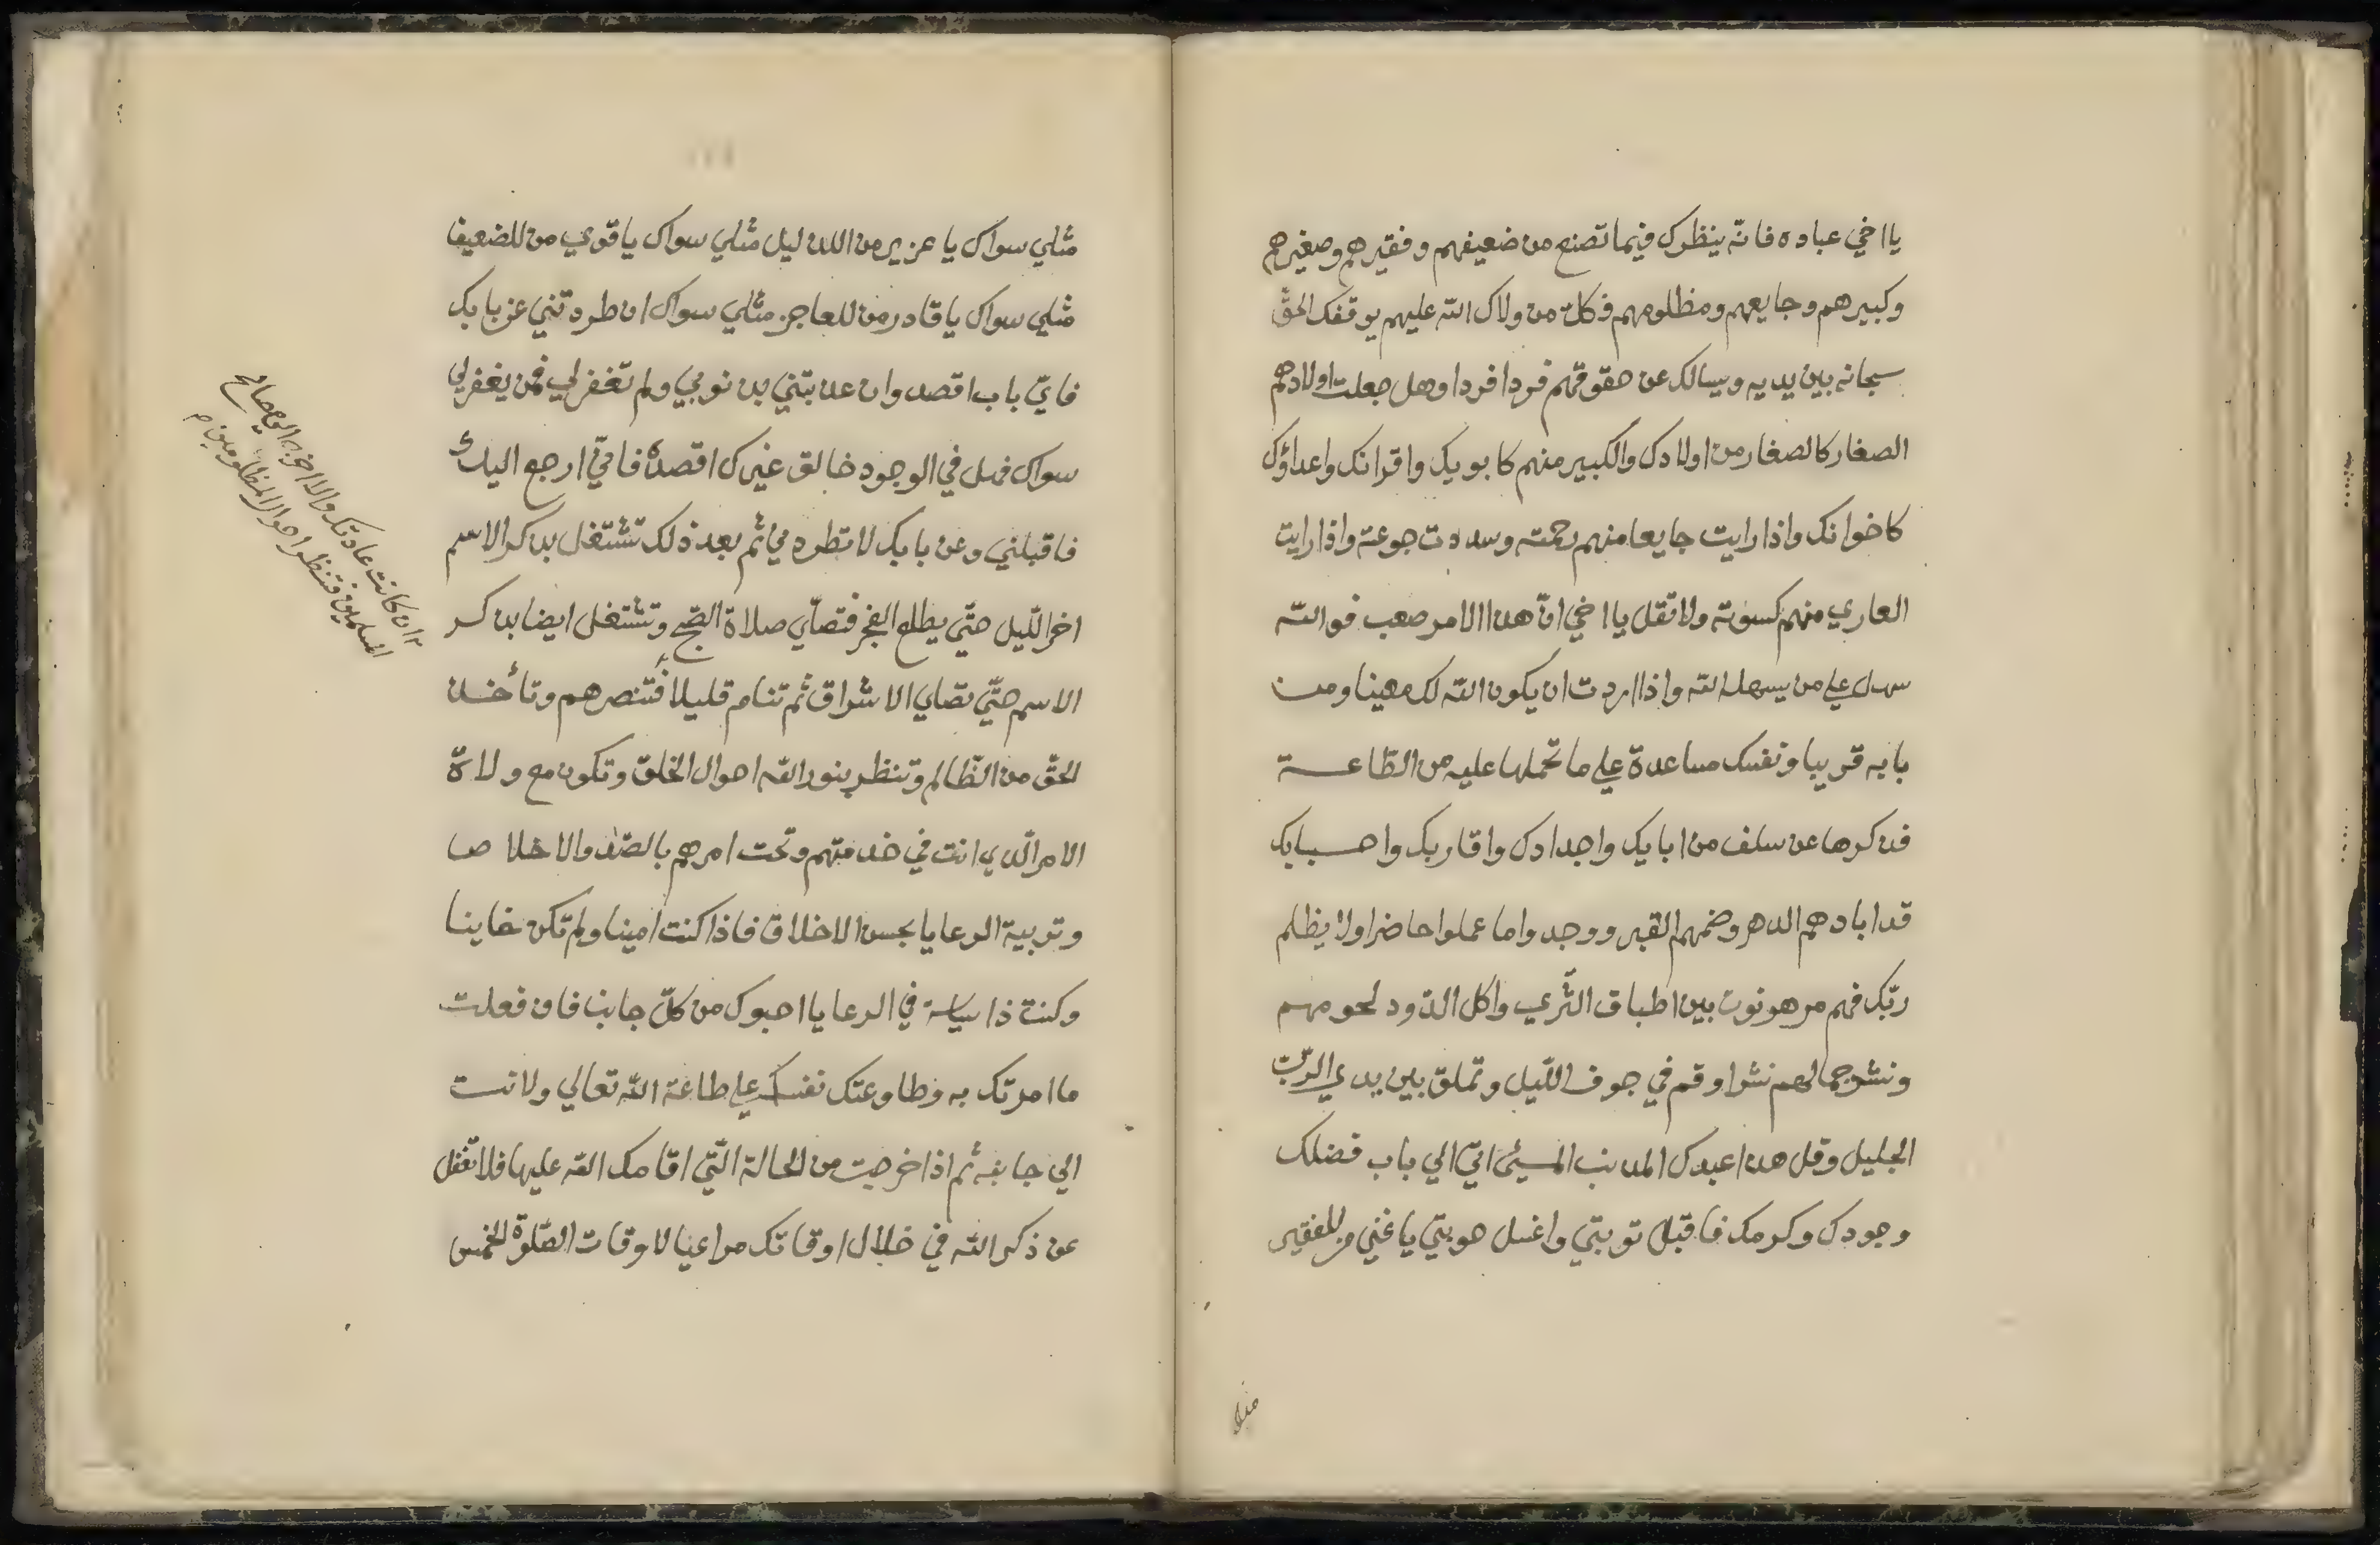 يا اخي عباده فانه ينظرك فيما تصنع من ضعيفهم وفقيرهم وصغيرهم
وكبيرهم وجايعهم ومظلومهم فكل من ولاك الله عليهم يوقفك الحقّ
سبحانه بين يديه ويسالك عن حقوقهم فردا فردا وهل جعلت اولادهم
الصغار كالصغار من اولادك والكبير منهم كابويك واقرانك واعداؤك
كاخوانك واذا رايت جايعا منهم رحمته وسددت جوعته واذا رايت
العاري منهم كسوته ولا تقل يا اخي انّ هذا الامر صعب فو الله
سهل علي من يسهله الله واذا اردت ان يكون الله لك معينا ومن
بابه قريبا ونفسك مساعدة علي ما تحملها عليه من الطّاعة
فذكرها عن سلف من ابايك واجدادك واقاربك واحبابك
قد ابادهم الدهر وضمهم القبر ووجدوا ما عملوا حاضرا ولا يظلم
ربّك فهم مرهونون بين اطباق الثّري واكل الدّود لحومهم
ونشر جمالهم نشرا وقم في جوف اللّيل وتملق بين يدي الرّبّ
الجليل وقل هذا عبدك المذنب المسيئ اتي الي باب فضلك
وجودك وكرمك فاقبل توبتي واغسل حوبتي يا غني من للفقير
مثلي
مثلي سواك يا عزيز من للذليل مثلي سواك يا قوي من للضعيف
مثلي سواك يا قادر من للعاجز مثلي سواك ان طردتني عن بابك
فايّ باب اقصد وان عذبتني بذنوبي ولم تغفر لي فمن يغفر لي
سواك فهل في الوجود خالق غيرك اقصده فانّي ارجع اليك
فاقبلني وعن بابك لا تطردني ثم بعد ذلك تشتغل بذكر الاسم
اخر اللّيل حتّي يطلع الفجر فتصلّي صلاة الصّبح وتشتغل ايضا بذكر
الاسم حتّي تصلي الاشراق ثم تنام قليلا فتنصرهم وتأخذ
الحقّ من الظّالم وتنظر بنور الله احوال الخلق وتكون مع ولاة
الامر الّذي انت في خدمتهم وتحت امرهم بالصّدق والاخلاص
وتربية الرعايا بحسن الاخلاق فاذا كنت امينا ولم تكن خاينا
وكنت ذا سياسة في الرعايا احبوك من كلّ جانب فان فعلت
ما امرتك به وطاوعتك نفسك علي طاعة الله تعالي ولانت
الي جانبه ثم اذا خرجت من الحالة الّتي اقامك الله عليها فلا تغفل
عن ذكر الله في خلال اوقاتك مراعيا لاوقات الصّلوة الخمس
ان كانت عادتك والا اخرج الي مصالح
المسلمين فتنظر احوال المظلومين